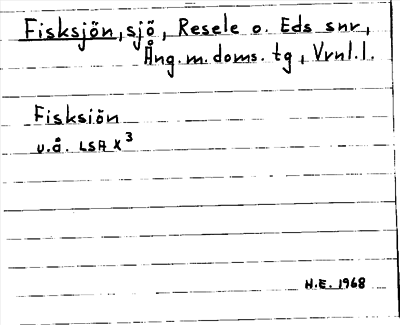 Fisksjön, sjö, Resele o. Eds snr,
Ång. m. doms. tg, Vrnl. l.
Fisksiön
u.å. LSA X³
H.E. 1968